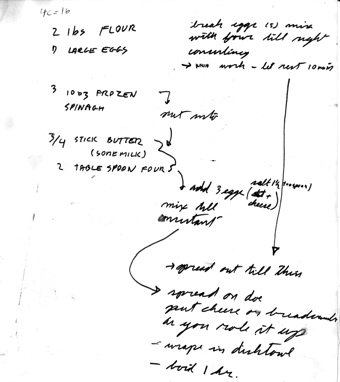 4C = 1 lb
2 lbs FLOUR
7 LARGE EGGS
break eggs (5) mix
with flour till right
consistincy
→ work - let rest 10 min
3 10oz FROZEN
SPINAGH
3/4 STICK BUTTER
(SOME MILK)
2 TABLE SPOON FOUR
add 3 eggs (salt 1/2 teaspoon)
+
cheese
mix till
consistant
→ spread out till thin
spread on doe
put cheese on breadcrumbs
as you role it up
- wrape in dishtowl
- boil 1 hr.